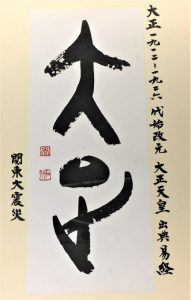 大正一九一二~一九二六 代始改元 大正天皇 出典易経
大正
関東大震災